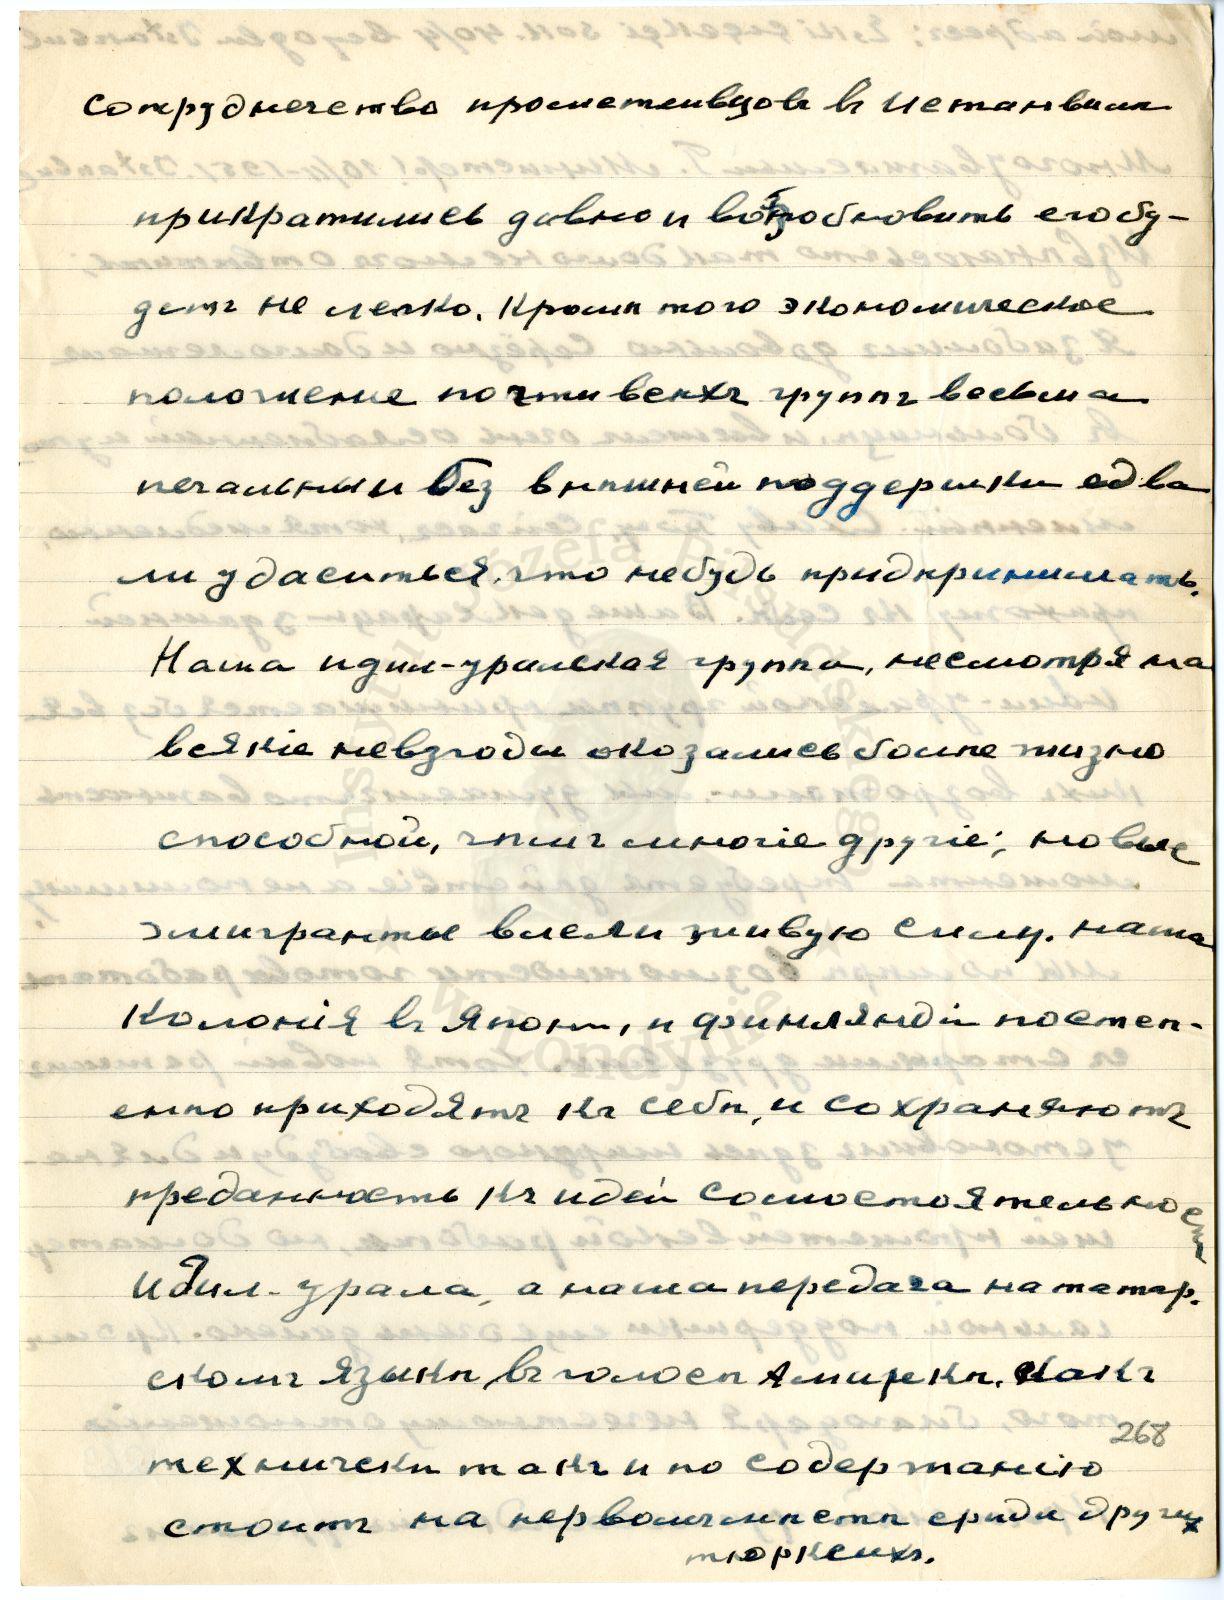 сотрудничество прометеивцовъ въ Истанвилѣ
прикратились давно и возобновить его бу-
детъ не легко. Кромѣ того экономическое
положение почти всѣхъ группъ весьма
печальны и без внѣшней поддержки едва
ли удаситься что небудь придпринимать.
Наша идил-уралская группа, несмотря на
всякіе невзгоды оказались болѣе жизно
способной, чѣмъ многіе другіе; новые
эмигранты внесли живую силу. наша
Колонія въ Японіи, и Финляндіи постеп-
енно приходятъ къ себѣ, и сохраняютъ
преданность къ идей самостоятельност
Идил-Урала, а наша передача на татар.
скомъ языкѣ, въ голосѣ Амирекѣ. Какъ
268
технически такъ и по содержанію
стоитъ на первомъ мѣстѣ среди других
тюркскихъ.
Instytut Józefa Piłsudskiego
w Londynie